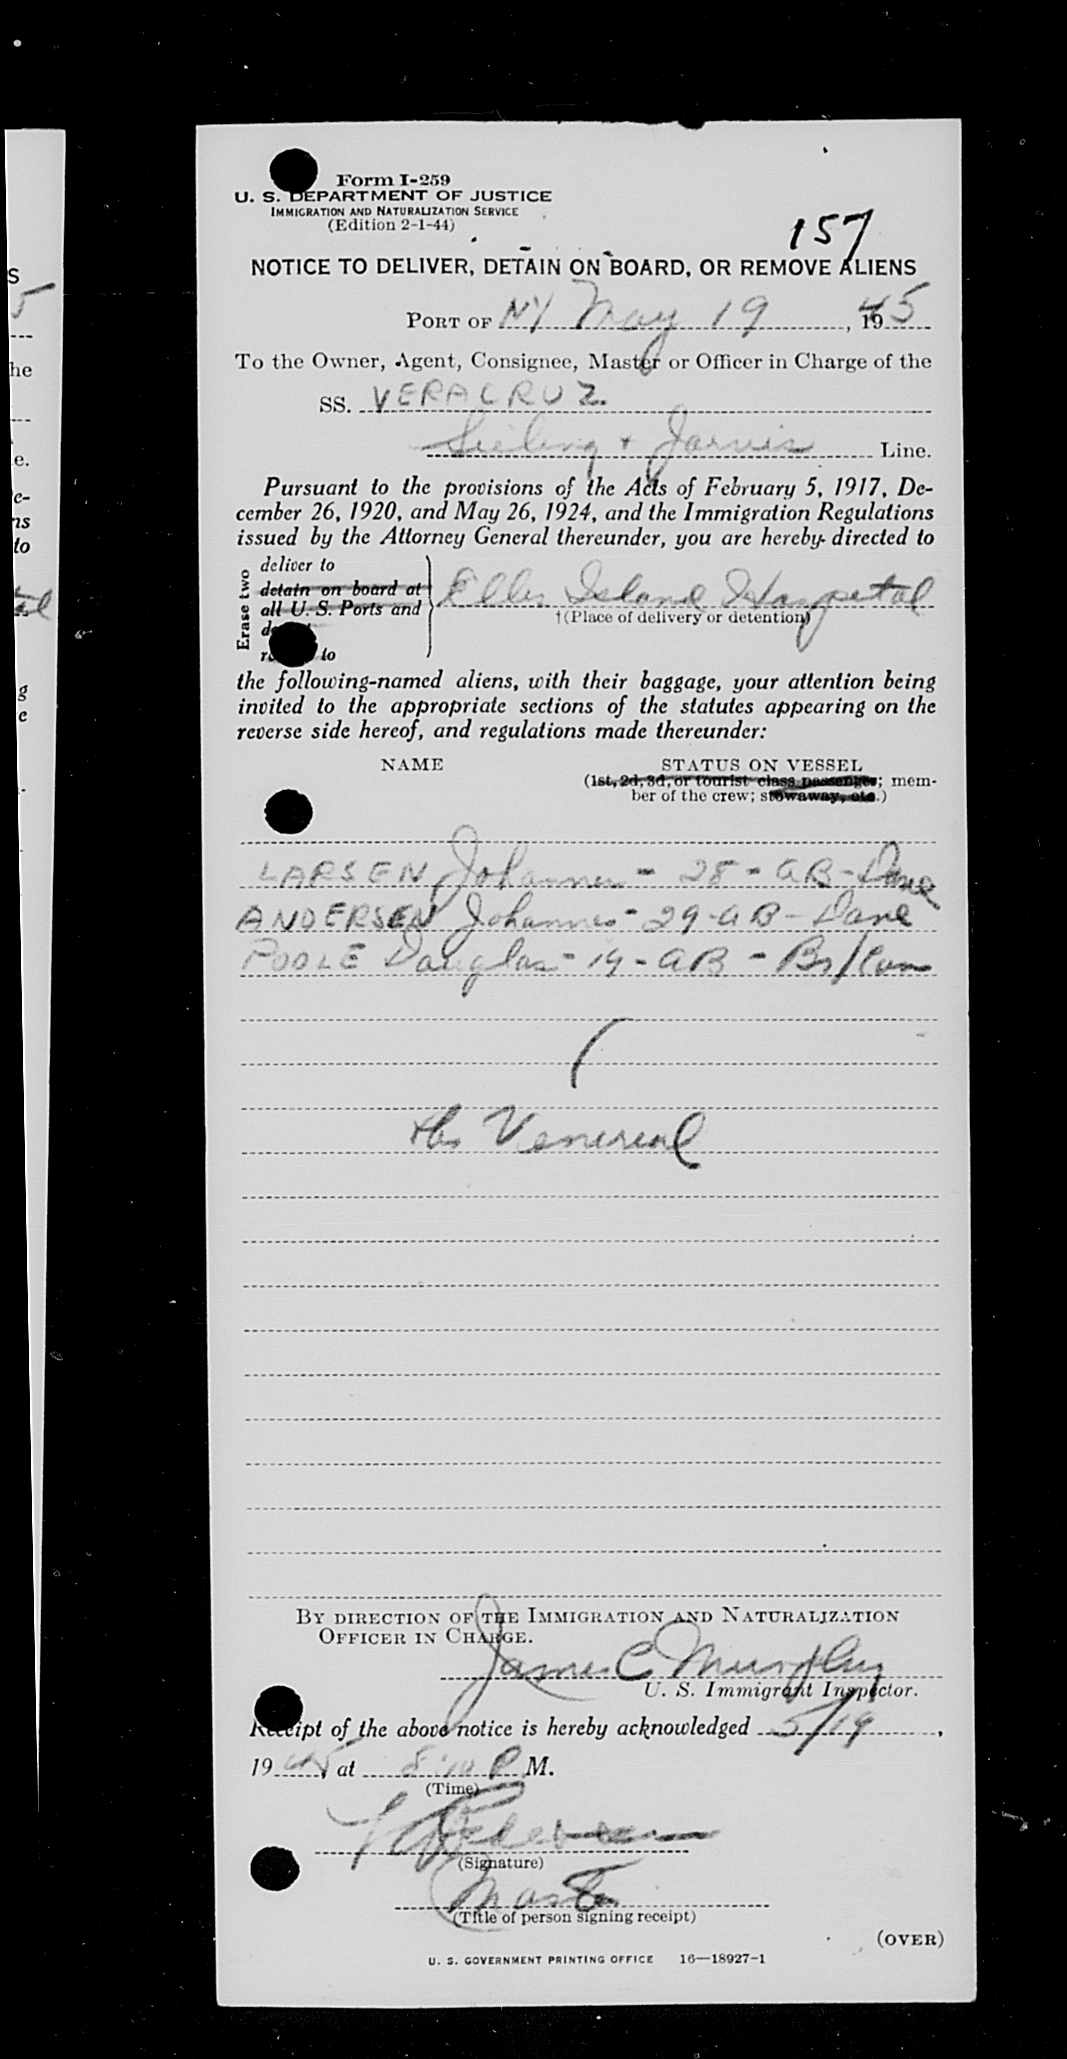 Form I-259
U. S. DEPARTMENT OF JUSTICE
IMMIGRATION AND NATURALIZATION SERVICE
(Edition 2-1-44)
157
NOTICE TO DELIVER, DETAIN ON BOARD, OR REMOVE ALIENS
PORT OF NY May 19, 1945
To the Owner, Agent, Consignee, Master or Officer in Charge of the
SS. VERACRUZ
& Jarvis Line.
Pursuant to the provisions of the Acts of February 5, 1917, De-
cember 26, 1920, and May 26, 1924, and the Immigration Regulations
issued by the Attorney General thereunder, you are hereby directed to
Erase two
deliver to
detain on board at
all U. S. Ports and
to
Ellis Island Hospital
†(Place of delivery or detention)
the following-named aliens, with their baggage, your attention being
invited to the appropriate sections of the statutes appearing on the
reverse side hereof, and regulations made thereunder:
NAME STATUS ON VESSEL
(1st, 2d, 3d, or tourist class passenger; mem-
ber of the crew; stowaway, etc.)
LARSEN Johannes - 28 - AB - Dane
ANDERSEN Johannes - 29 - AB - Dane
POOLE Douglas - 19 - AB - Br/Can
Venereal
BY DIRECTION OF THE IMMIGRATION AND NATURALIZATION
OFFICER IN CHARGE.
James C Murphy
U. S. Immigrant Inspector.
Receipt of the above notice is hereby acknowledged 5/19,
1945, at 8:10 P M.
(Time)
(Signature)
Master
(Title of person signing receipt)
(OVER)
U. S. GOVERNMENT PRINTING OFFICE 16—18927-1